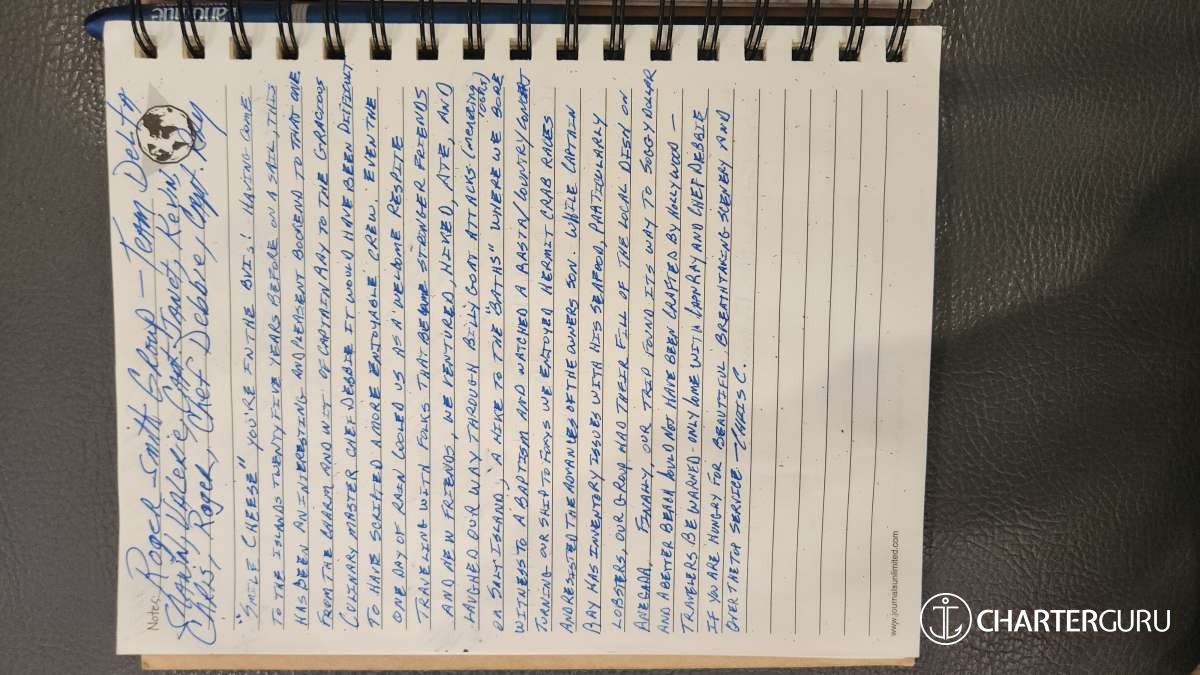 Notes:
Roger Smith Group – Team Debity
Chris, Roger, Chef Debbie, Capt. Ray
"SMILE CHEESE" YOU'RE IN THE BVI! HAVING COME
TO THE ISLANDS TWENTY FIVE YEARS BEFORE ON A SAIL, THIS
HAS BEEN AN INTERESTING AND PLEASENT BOOKEND TO THAT ONE
FROM THE CHARM AND WIT OF CAPTAIN RAY TO THE GRACIOUS
CULINARY MASTER CHEF DEBBIE IT WOULD HAVE BEEN DIFFICULT
TO HAVE SCRIPTED A MORE ENJOYABLE CREW. EVEN THE
ONE DAY OF RAIN COOLED US AS A WELCOME RESPITE
TRAVELING WITH FOLKS THAT BECOME STRONGER FRIENDS
AND NEW FRIENDS, WE VENTURED, HIKED, ATE, AND
LAUGHED OUR WAY THROUGH BILLY GOAT ATTACKS (MENACING LOOKS)
ON SALT ISLAND, A HIKE TO THE "BATHS" WHERE WE BORE
WITNESS TO A BAPTISM AND WATCHED A RASTA/COUNTRY CONCERT
TURNING OUR SHIP TO FOXYS WE ENJOYED HERMIT CRAB RACES
AND RESISTED THE ADVANCES OF THE OWNERS SON. WHILE CAPTAIN
RAY HAS INVENTORY ISSUES WITH HIS SEAFOOD, PARTICULARLY
LOBSTERS, OUR GROUP HAD THEIR FILL OF THE LOCAL DISH ON
ANEGADA. FINALLY, OUR TRIP FOUND ITS WAY TO SOGGY DOLLAR
AND A BETTER BEACH COULD NOT HAVE BEEN CRAFTED BY HOLLYWOOD –
TRAVELERS BE WARNED - ONLY COME WITH CAPN RAY AND CHEF DEBBIE
IF YOU ARE HUNGRY FOR BEAUTIFUL, BREATHTAKING SCENERY AND
OVER THE TOP SERVICE – CHRIS C.
www.journalsunlimited.com
CHARTERGURU